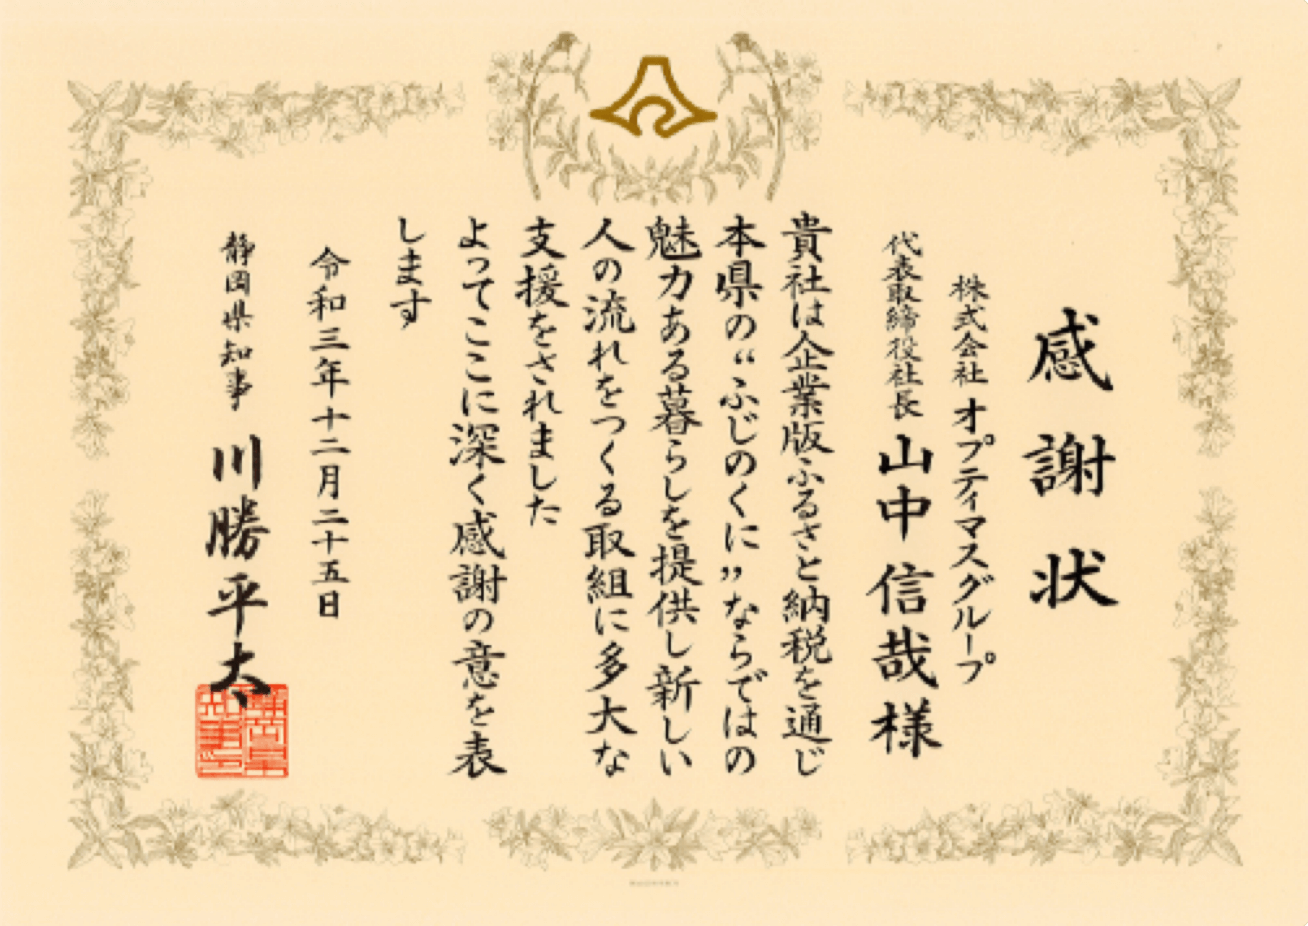 感謝状
株式会社 オプティマスグループ
代表取締役社長 山中信哉様
貴社は企業版ふるさと納税を通じ
本県の“ふじのくに”ならではの
魅力ある暮らしを提供し新しい
人の流れをつくる取組に多大な
支援をされました
よってここに深く感謝の意を表
します
令和三年十二月二十五日
静岡県知事 川勝平太